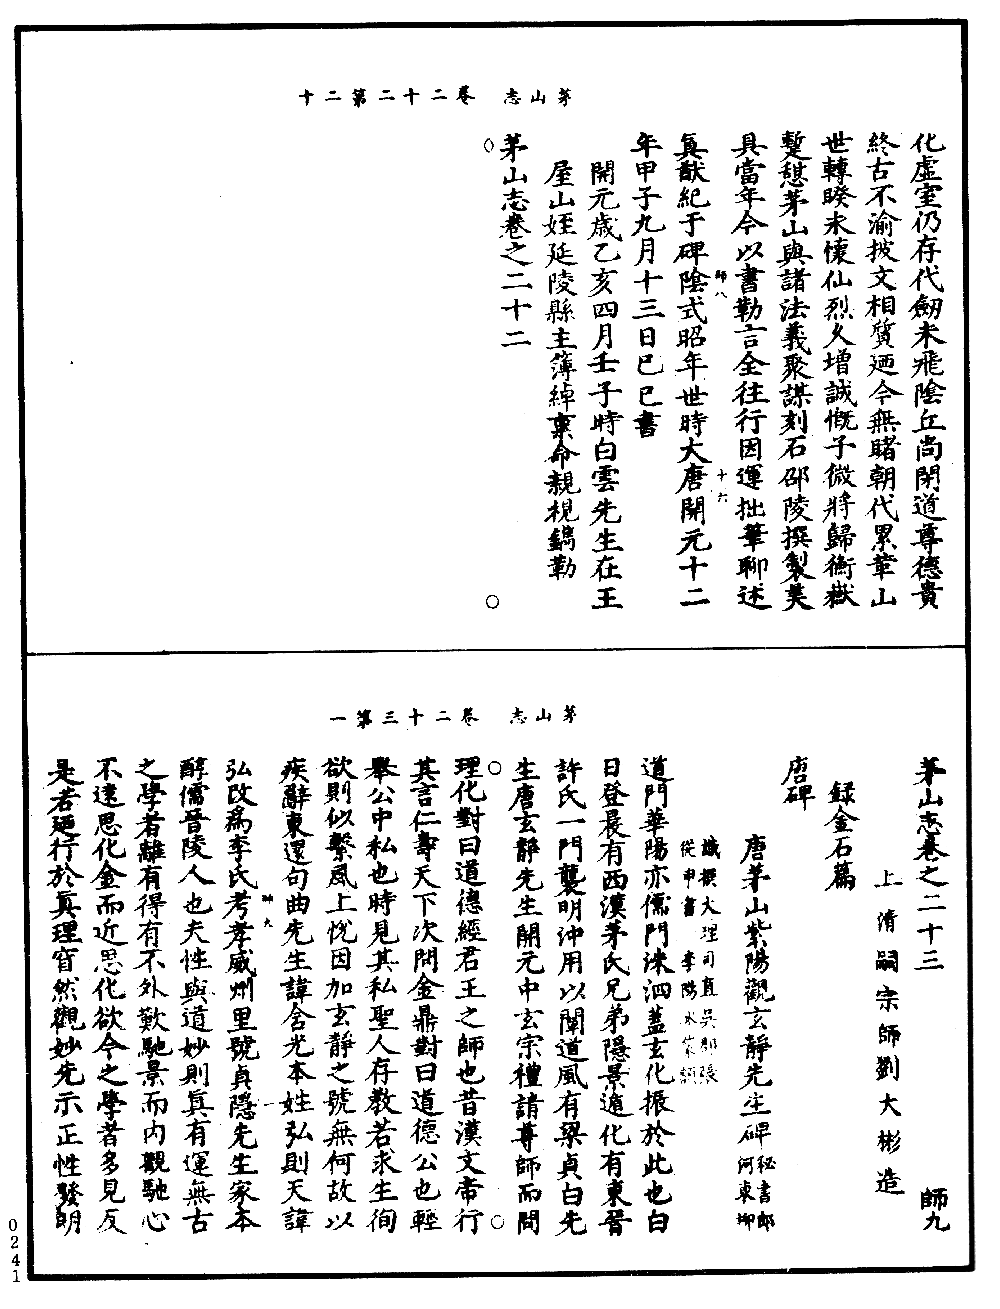 茅山志　卷二十二第二十
化虛室仍存代劒未飛陰丘尚閉道尊德貴
終古不渝披文相質廼今無睹朝代累葉山
世轉睽未懷仙烈久增誠慨子微將歸衡嶽
蹔憇茅山與諸法義聚謀刻石邵陵撰製美
具當年今以書勒言全往行因運拙筆聊述
師八　十六
眞猷紀于碑陰式昭年世時大唐開元十二
年甲子九月十三日己巳書
開元歳乙亥四月壬子時白雲先生在王
屋山姪延陵縣主簿綽稟命親視鐫勒
茅山志卷之二十二
茅山志　卷二十三第一
茅山志卷之二十三　師九
上清嗣宗師劉大彬造
録金石篇
唐碑
唐茅山紫陽觀玄靜先生碑 秘書郎河東柳
識撰大理司直吳郡張從申書 李陽冰篆額
道門華陽亦儒門洙泗蓋玄化振於此也白
日登晨有西漢茅氏兄弟隱景遁化有東晉
許氏一門襲明沖用以闡道風有梁貞白先
生唐玄靜先生開元中玄宗禮請尊師而問
理化對曰道德經君王之師也昔漢文帝行
其言仁壽天下次問金鼎對曰道德公也輕
舉公中私也時見其私聖人存教若求生徇
欲則似繫風上悅因加玄靜之號無何故以
疾辭東還句曲先生諱含光本姓弘則天諱
弘改爲李氏考孝威州里號貞隱先生家本
師九　一
醇儒晉陵人也夫性與道妙則眞有運無古
之學者離有得有不外歎馳景而內觀馳心
不遠思化金而近思化欲今之學者多見反
是若廼行於眞理窅然觀妙先示正性發明
0241